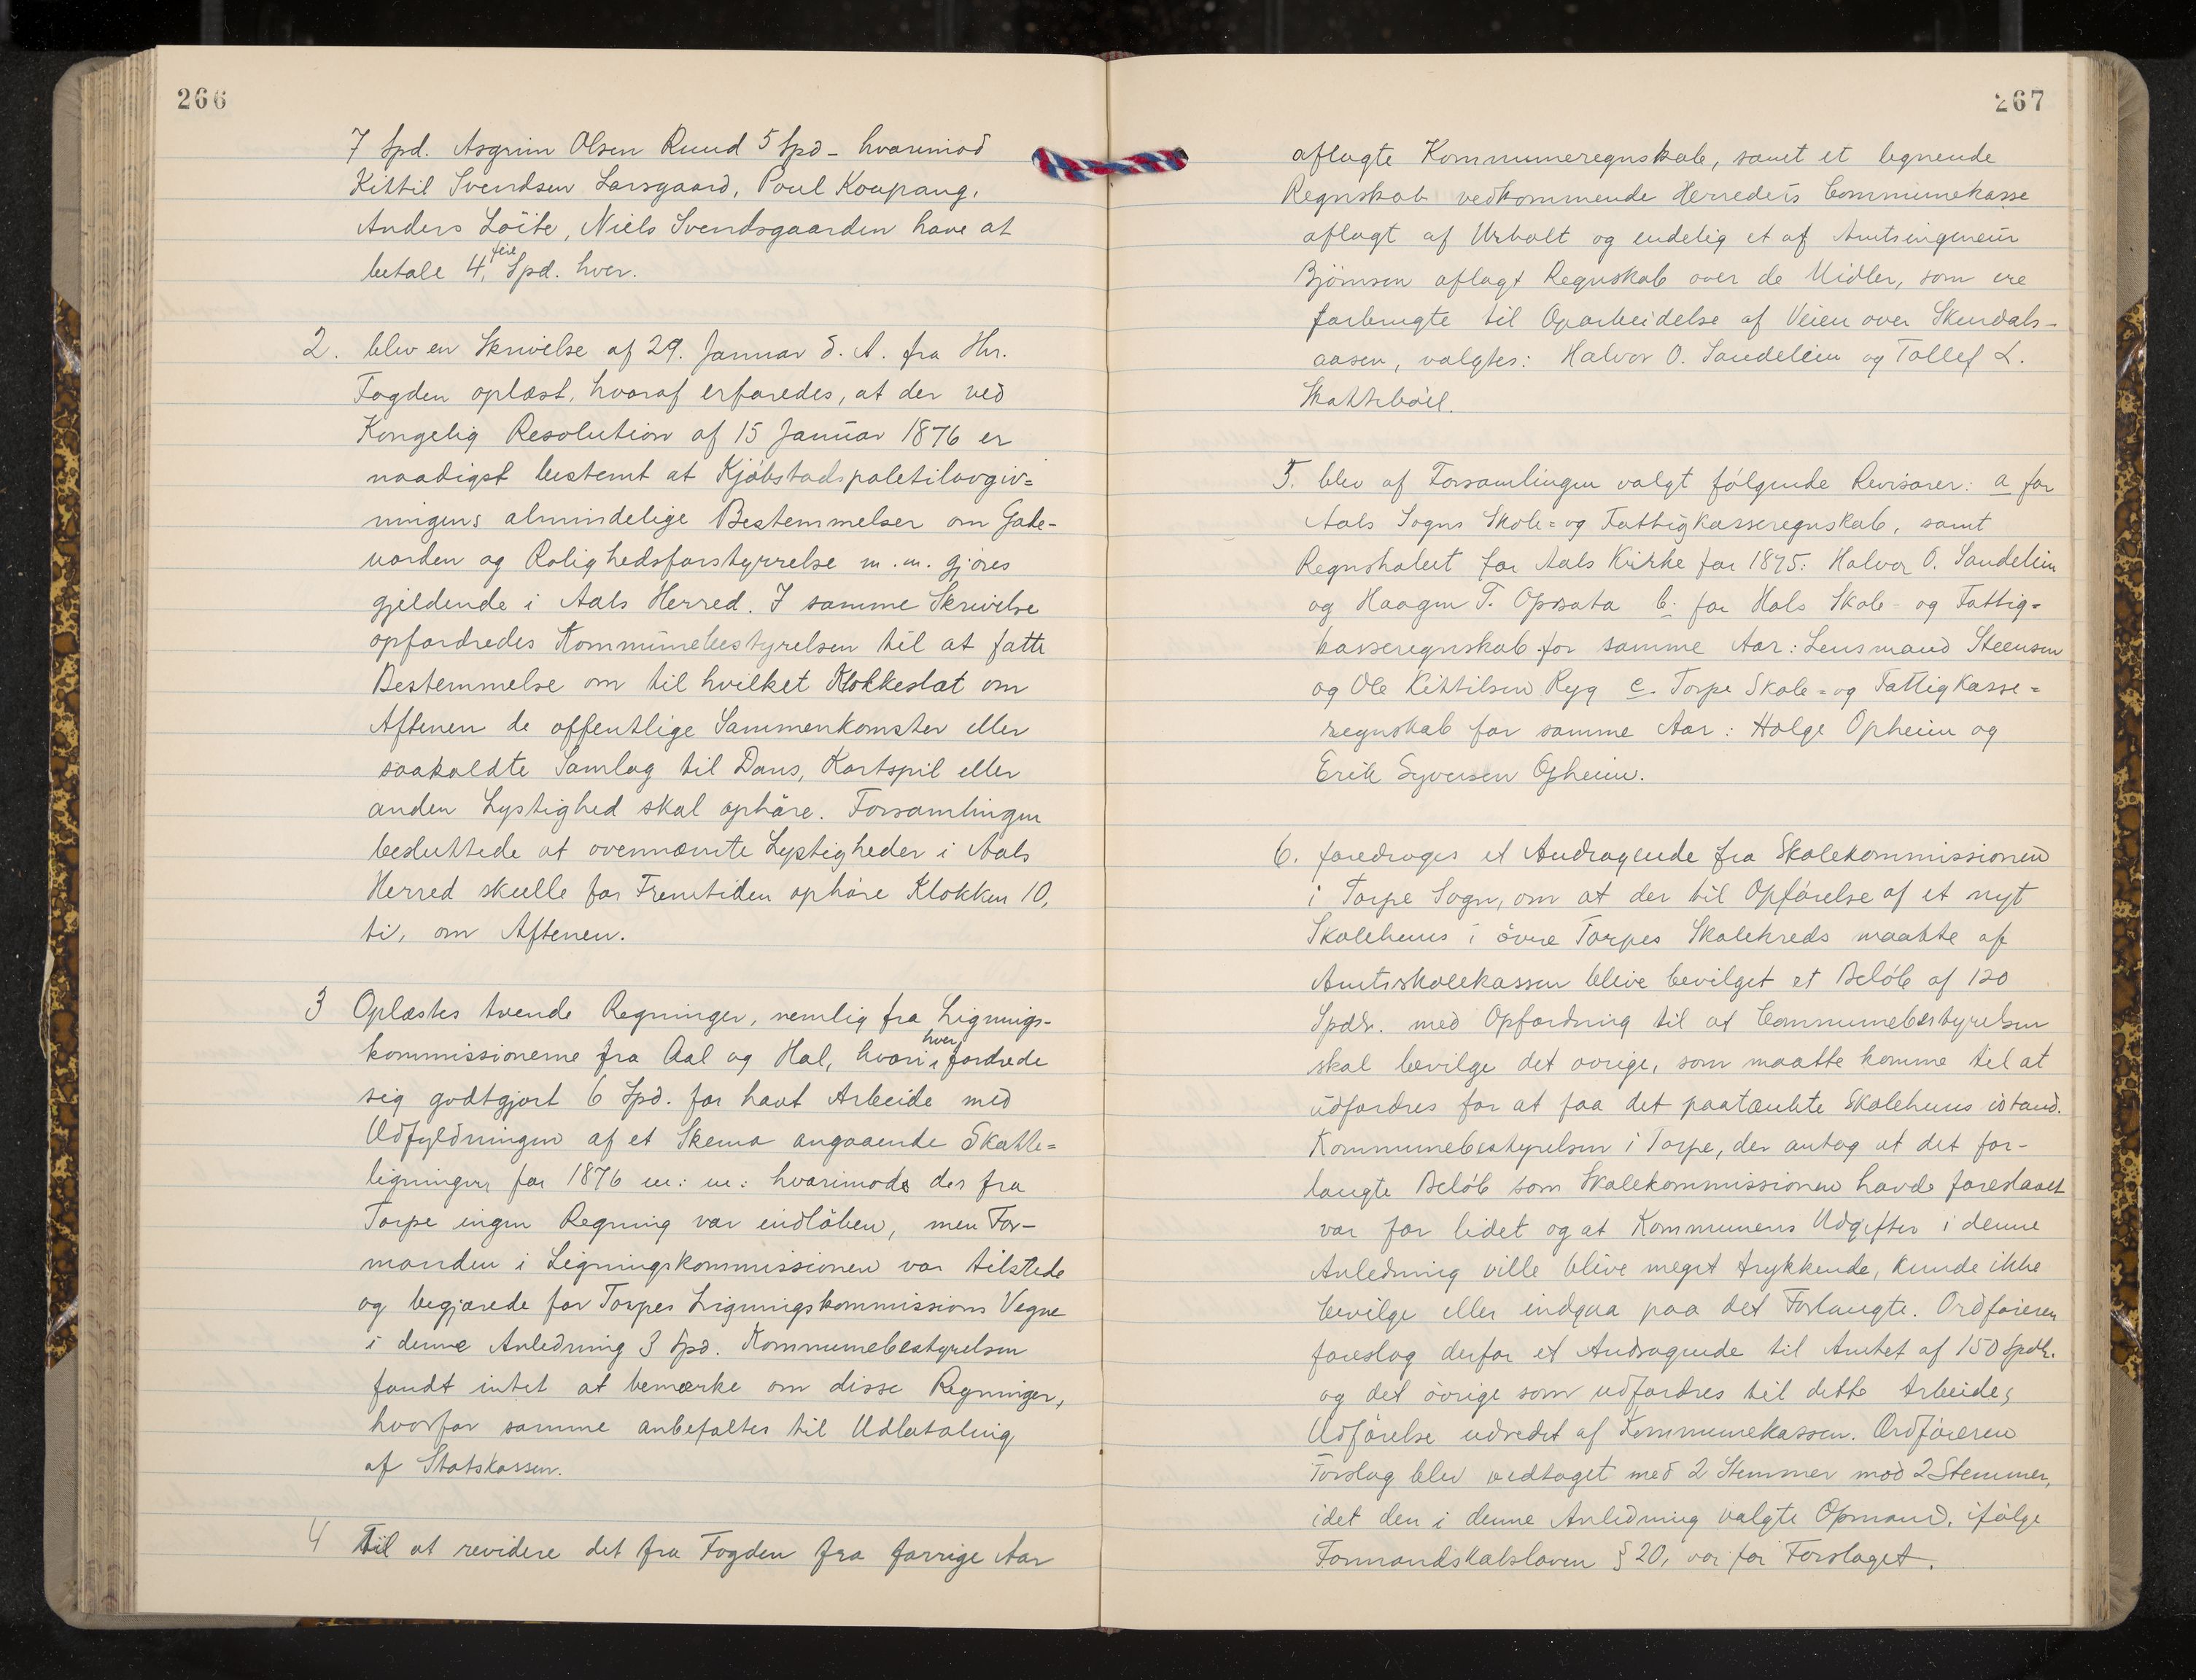 266
7 Spd. Asgrim Olsen Ruud 5 Spd - hvorimod
Kittil Svendsen Larsgaard, Poul Koupang,
Anders Löite, Niels Svendsgaarden have at
betale 4, fire Spd. hver.
2. blev en Skrivelse af 29. Januar d. A. fra Hr.
Fogden oplæst, hvoraf erfaredes, at der ved
Kongelig Resolution af 15 Januar 1876 er
naadigst bestemt at Kjöbstadspoletilovgiv=
ningens almindelige Bestemmelser om Gade-
uorden og Rolighedsforstyrrelse m. m. gjöres
gjeldende i Aals Herred. I samme Skrivelse
opfordredes Kommunebestyrelsen til at fatte
Bestemmelse om til hvilket Klokkeslat om
Aftenen de offentlige Sammenkomster eller
saakaldte Samlag til Dans, Kortspil eller
anden Lystighed skal ophöre. Forsamlingen
besluttede at ovennævnte Lystigheder i Aals
Herred skulle for Fremtiden ophöre Klokken 10,
ti, om Aftenen.
3 Oplæstes tvende Regninger, nemlig fra Lignings-
kommissionerne fra Aal og Hol, hvori hver fordrede
sig godtgjort 6 Spd. for havt Arbeide med
Udfyldningen af et Skema angaaende Skatte=
ligningen for 1876 m: m: hvorimod der fra
Torpe ingen Regning var indlöben, men For-
manden i Ligningskommissionen var tilstede
og begjærede for Torpes Ligningskommissions Vegne
i denne Anledning 3 Spd. Kommunebestyrelsen
fandt intet at bemærke om disse Regninger,
hvorfor samme anbefaltes til Udbetaling
af Statskassen.
4 Til at revidere det fra Fogden fra forrige Aar
267
aflagte Kommuneregnskab, samt et lignende
Regnskab vedkommende Herredets Communekasse
aflagt af Urholt og endelig et af Amtsingeneur
Björnsen aflagt Regnskab over de Midler, som ere
forbrugte til Oparbeidelse af Veien over Skurdals-
aasen, valgtes: Halvor O. Sandelein og Tollef L.
Skatteböel.
5. blev af Forsamlingen valgt fölgende Revisorer: a for
Aals Sogns Skole= og Fattigkasseregnskab, samt
Regnskabet for Aals Kirke for 1875: Halvor O. Sandelien
og Haagen T. Opsata b. for Hols Skole- og Fattig=
kasseregnskab for samme Aar: Lensmand Steensen
og Ole Kittilsen Ryg c. Torpe Skole= og Fattigkasse=
regnskab for samme Aar: Holge Opheim og
Erik Syversen Opheim.
6. foredroges et Andragende fra Skolekommissionen
i Torpe Sogn, om at der til Opförelse af et nyt
Skolehuus i övre Torpes Skolekreds maatte af
Amtsskolekassen blive bevilget et Belöb af 120
Spdlr. med Opfordring til at Communebestyrelsen
skal bevilge det ovrige, som maatte komme til at
udfordres for at faa det paatænkte Skolehuus istand.
Kommunebestyrelsen i Torpe, der antog at det for-
langte Belöb som Skolekommissionen havde foreslaaet
var for lidet og at Kommunens Udgifter i denne
Anledning ville blive meget trykkende, kunde ikke
bevilge eller indgaa paa det Forlangte. Ordföreren
foreslog derfor et Andragende til Amtet af 150 Spdlr.
og det övrige som udfordres til dette Arbeides
Udförelse udredet af Kommunekassen. Ordföreren
Forslag blev vedtaget med 2 Stemmer mod 2 Stemmer,
idet den i denne Anledning valgte Opmand, ifölge
Formandskabsloven § 20, var for Forslaget.